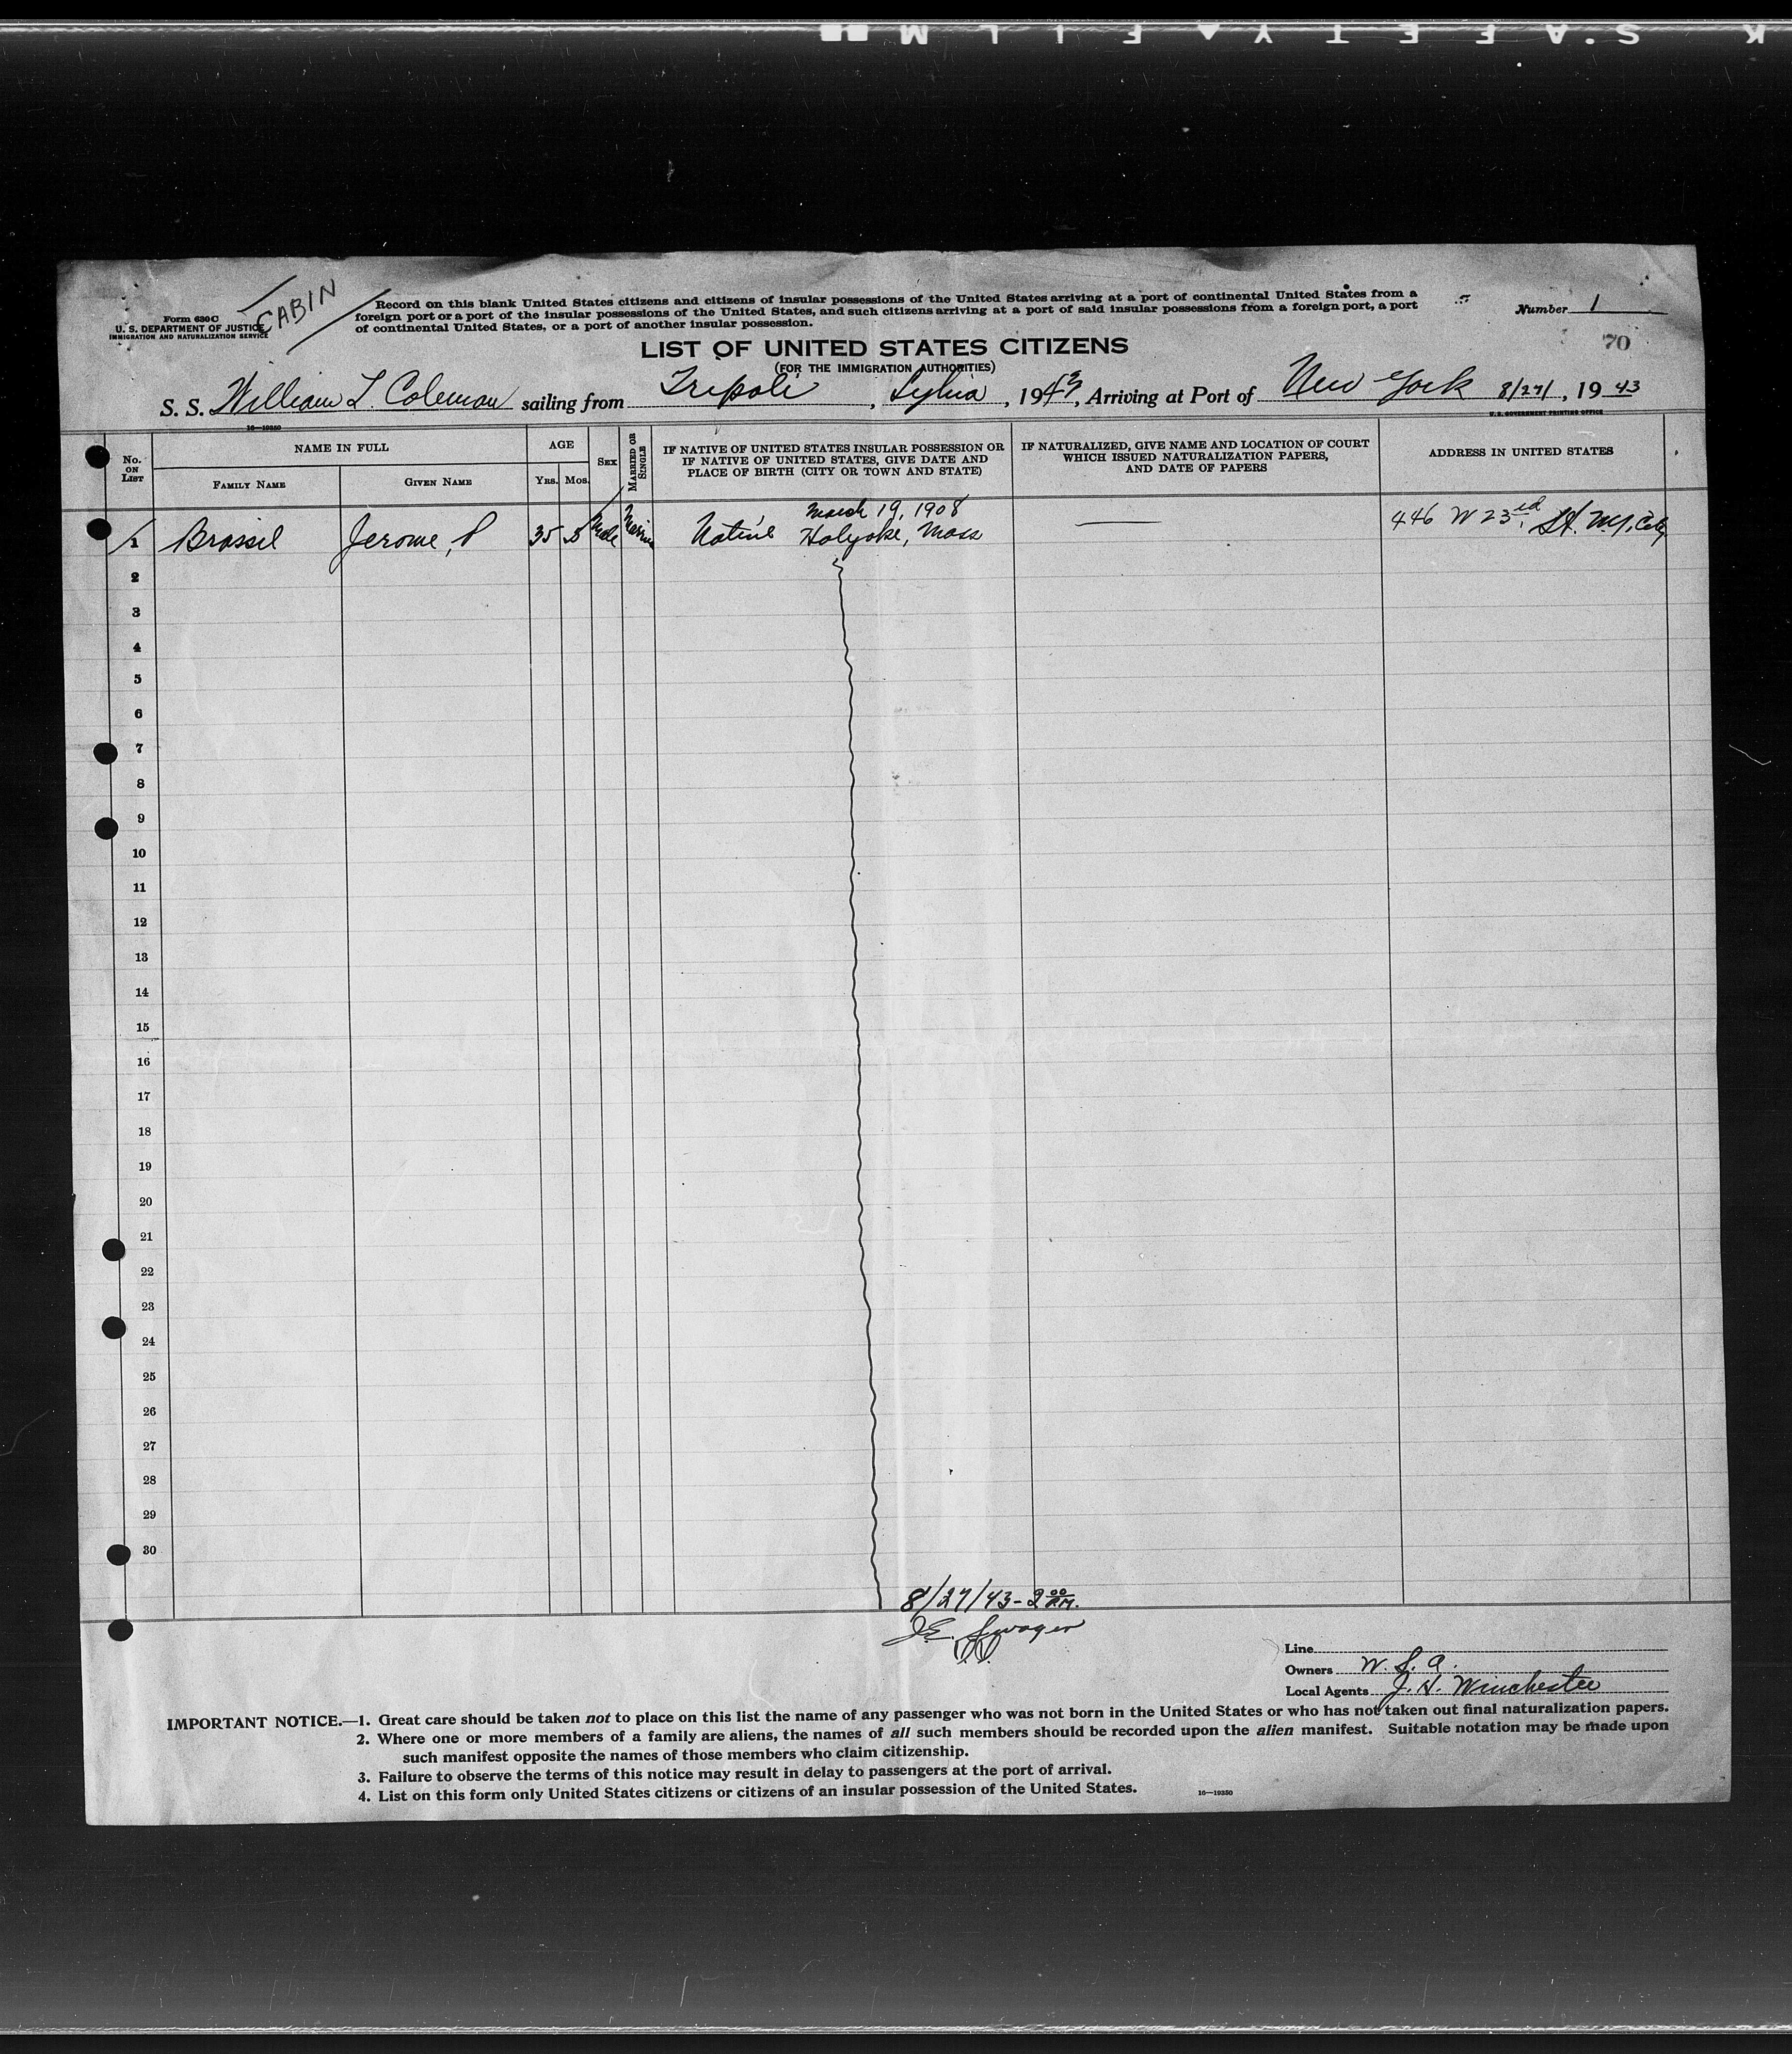 K S.A.F.E.T.Y ▲ F I L M
CABIN
Form 630 C
U. S. DEPARTMENT OF JUSTICE
IMMIGRATION AND NATURALIZATION SERVICE
Record on this blank United States citizens and citizens of insular possessions of the United States arriving at a port of continental United States from a
foreign port or a port of the insular possessions of the United States, and such citizens arriving at a port of said insular possessions from a foreign port, a port
of continental United States, or a port of another insular possession.
Number 1
70
LIST OF UNITED STATES CITIZENS
(FOR THE IMMIGRATION AUTHORITIES)
S. S. William T. Coleman sailing from Tripoli, Lybia, 1943, Arriving at Port of New York 8/27/, 19 43
16—19350
U. S. GOVERNMENT PRINTING OFFICE
No. ON LIST
NAME IN FULL
FAMILY NAME
GIVEN NAME
AGE
YRS. MOS.
SEX
MARRIED OR SINGLE
IF NATIVE OF UNITED STATES INSULAR POSSESSION OR
IF NATIVE OF UNITED STATES, GIVE DATE AND
PLACE OF BIRTH (CITY OR TOWN AND STATE)
IF NATURALIZED, GIVE NAME AND LOCATION OF COURT
WHICH ISSUED NATURALIZATION PAPERS,
AND DATE OF PAPERS
ADDRESS IN UNITED STATES
March 19, 1908
1 Brassil Jerome, P 35 5 Male Native Holyoke, Mass — 446 W 23rd. St. N.Y. City
2
3
4
5
6
7
8
9
10
11
12
13
14
15
16
17
18
19
20
21
22
23
24
25
26
27
28
29
30
8/27/43 - 2 00 P.M.
J.E. Swager
Line
Owners W. S. A.
Local Agents J. H. Winchester
IMPORTANT NOTICE.—1. Great care should be taken not to place on this list the name of any passenger who was not born in the United States or who has not taken out final naturalization papers.
2. Where one or more members of a family are aliens, the names of all such members should be recorded upon the alien manifest. Suitable notation may be made upon
such manifest opposite the names of those members who claim citizenship.
3. Failure to observe the terms of this notice may result in delay to passengers at the port of arrival.
4. List on this form only United States citizens or citizens of an insular possession of the United States.
16—19350